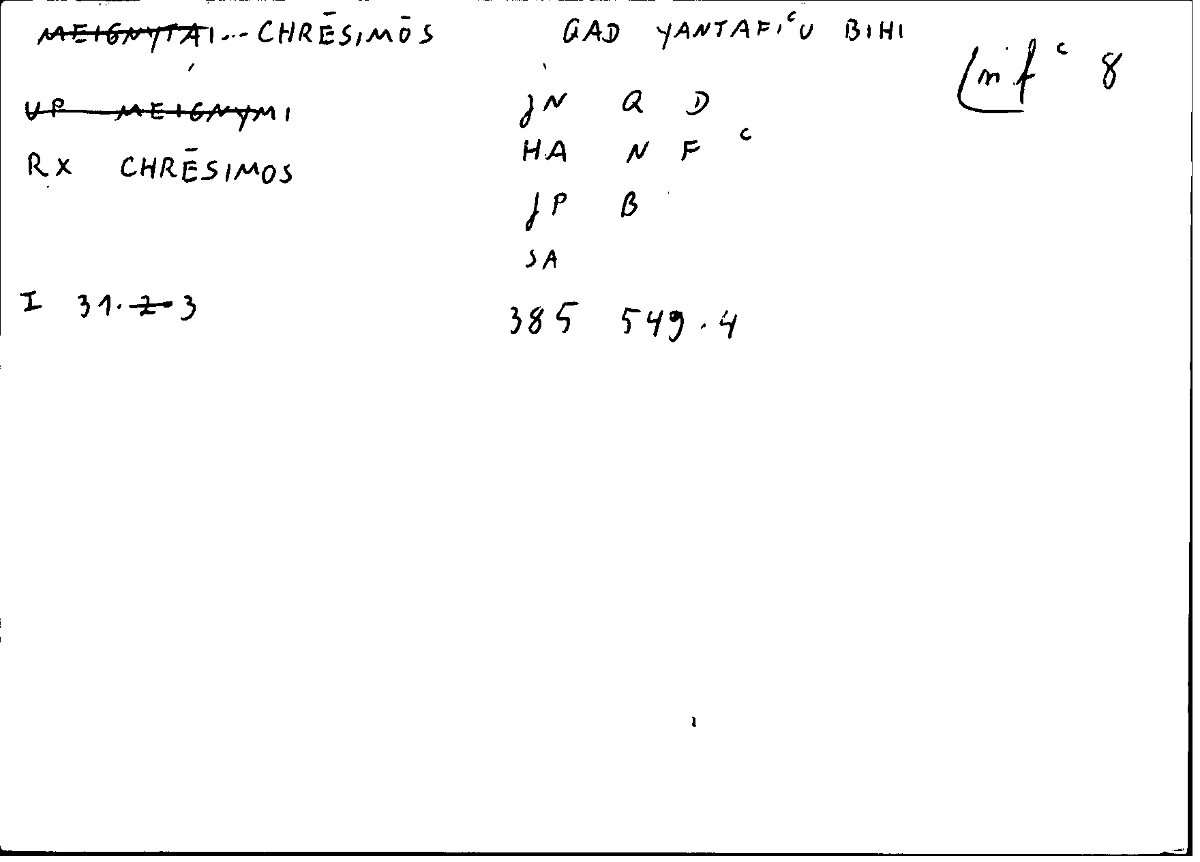 MEIGNYTAI... CHRĒSIMŌS GAD YANTAFIᶜU BIHI
nfᶜ 8
UP MEIGNYMI
jN Q D
HA N F ᶜ
RX CHRĒSIMOS
jP B
SA
I 31.2 3
385 549.4